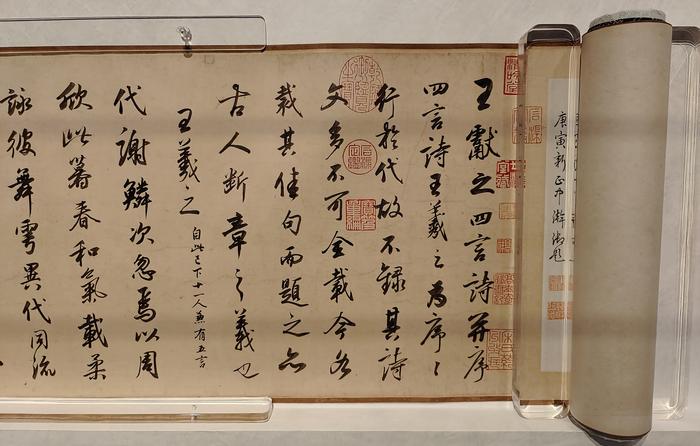 庚寅新正中澣御題
王獻之四言詩并序
四言詩王羲之為序序
行於代故不錄其詩
文多不可全載今各
裁其佳句而題之亦
古人斷章之義也
王羲之自此已下十一人兼有五言
代謝鱗次忽焉以周
欣此暮春和氣載柔
詠彼舞雩異代同流